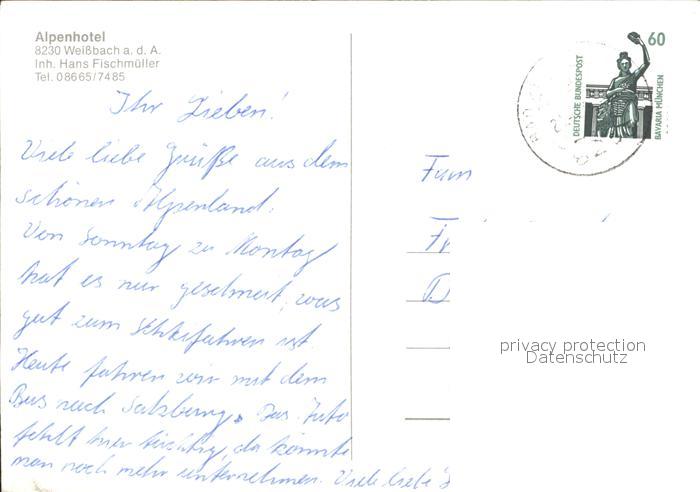 Alpenhotel
8230 Weißbach a. d. A.
Inh. Hans Fischmüller
Tel. 08665/7485
Ihr Lieben!
Viele liebe Grüße aus dem
schönen Alpenland.
Von Sonntag zu Montag
hat es nur geschneit, was
gut zum Schlifahren ist.
Heute fahren wir mit dem
Bus nach Salzburg. Das Auto
fehlt hier tüchtig, da könnte
man noch mehr unternehmen. Viele liebe
60
DEUTSCHE BUNDESPOST
BAVARIA MÜNCHEN
Fam
privacy protection
Datenschutz